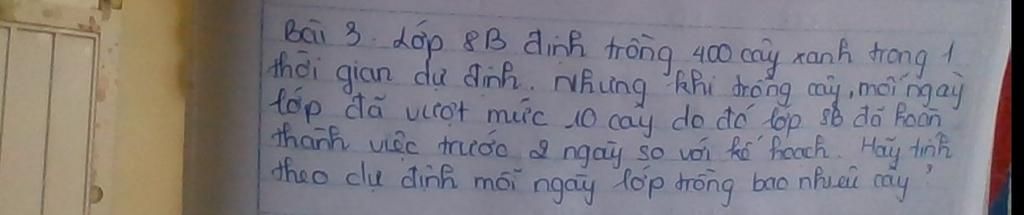 Bài 3. Lớp 8B định trồng 400 cây xanh trong 1
thời gian dự định. Nhưng khi trồng cây, mỗi ngày
lớp đã vượt mức 10 cây do đó lớp 8B đã hoàn
thành việc trước 2 ngày so với kế hoạch. Hãy tính
theo dự định mỗi ngày lớp trồng bao nhiêu cây?